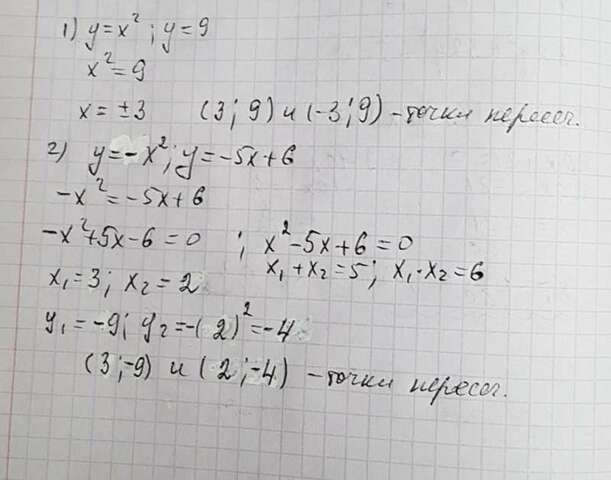 1) y=x²; y=9
x²=9
x=±3 (3; 9) и (-3; 9) - точки пересеч.
2) y=-x²; y=-5x+6
-x²=-5x+6
-x²+5x-6=0 ; x²-5x+6=0
x₁=3; x₂=2 x₁+x₂=5; x₁·x₂=6
y₁=-9; y₂=-(2)²=-4
(3;-9) и (2;-4) - точки пересеч.